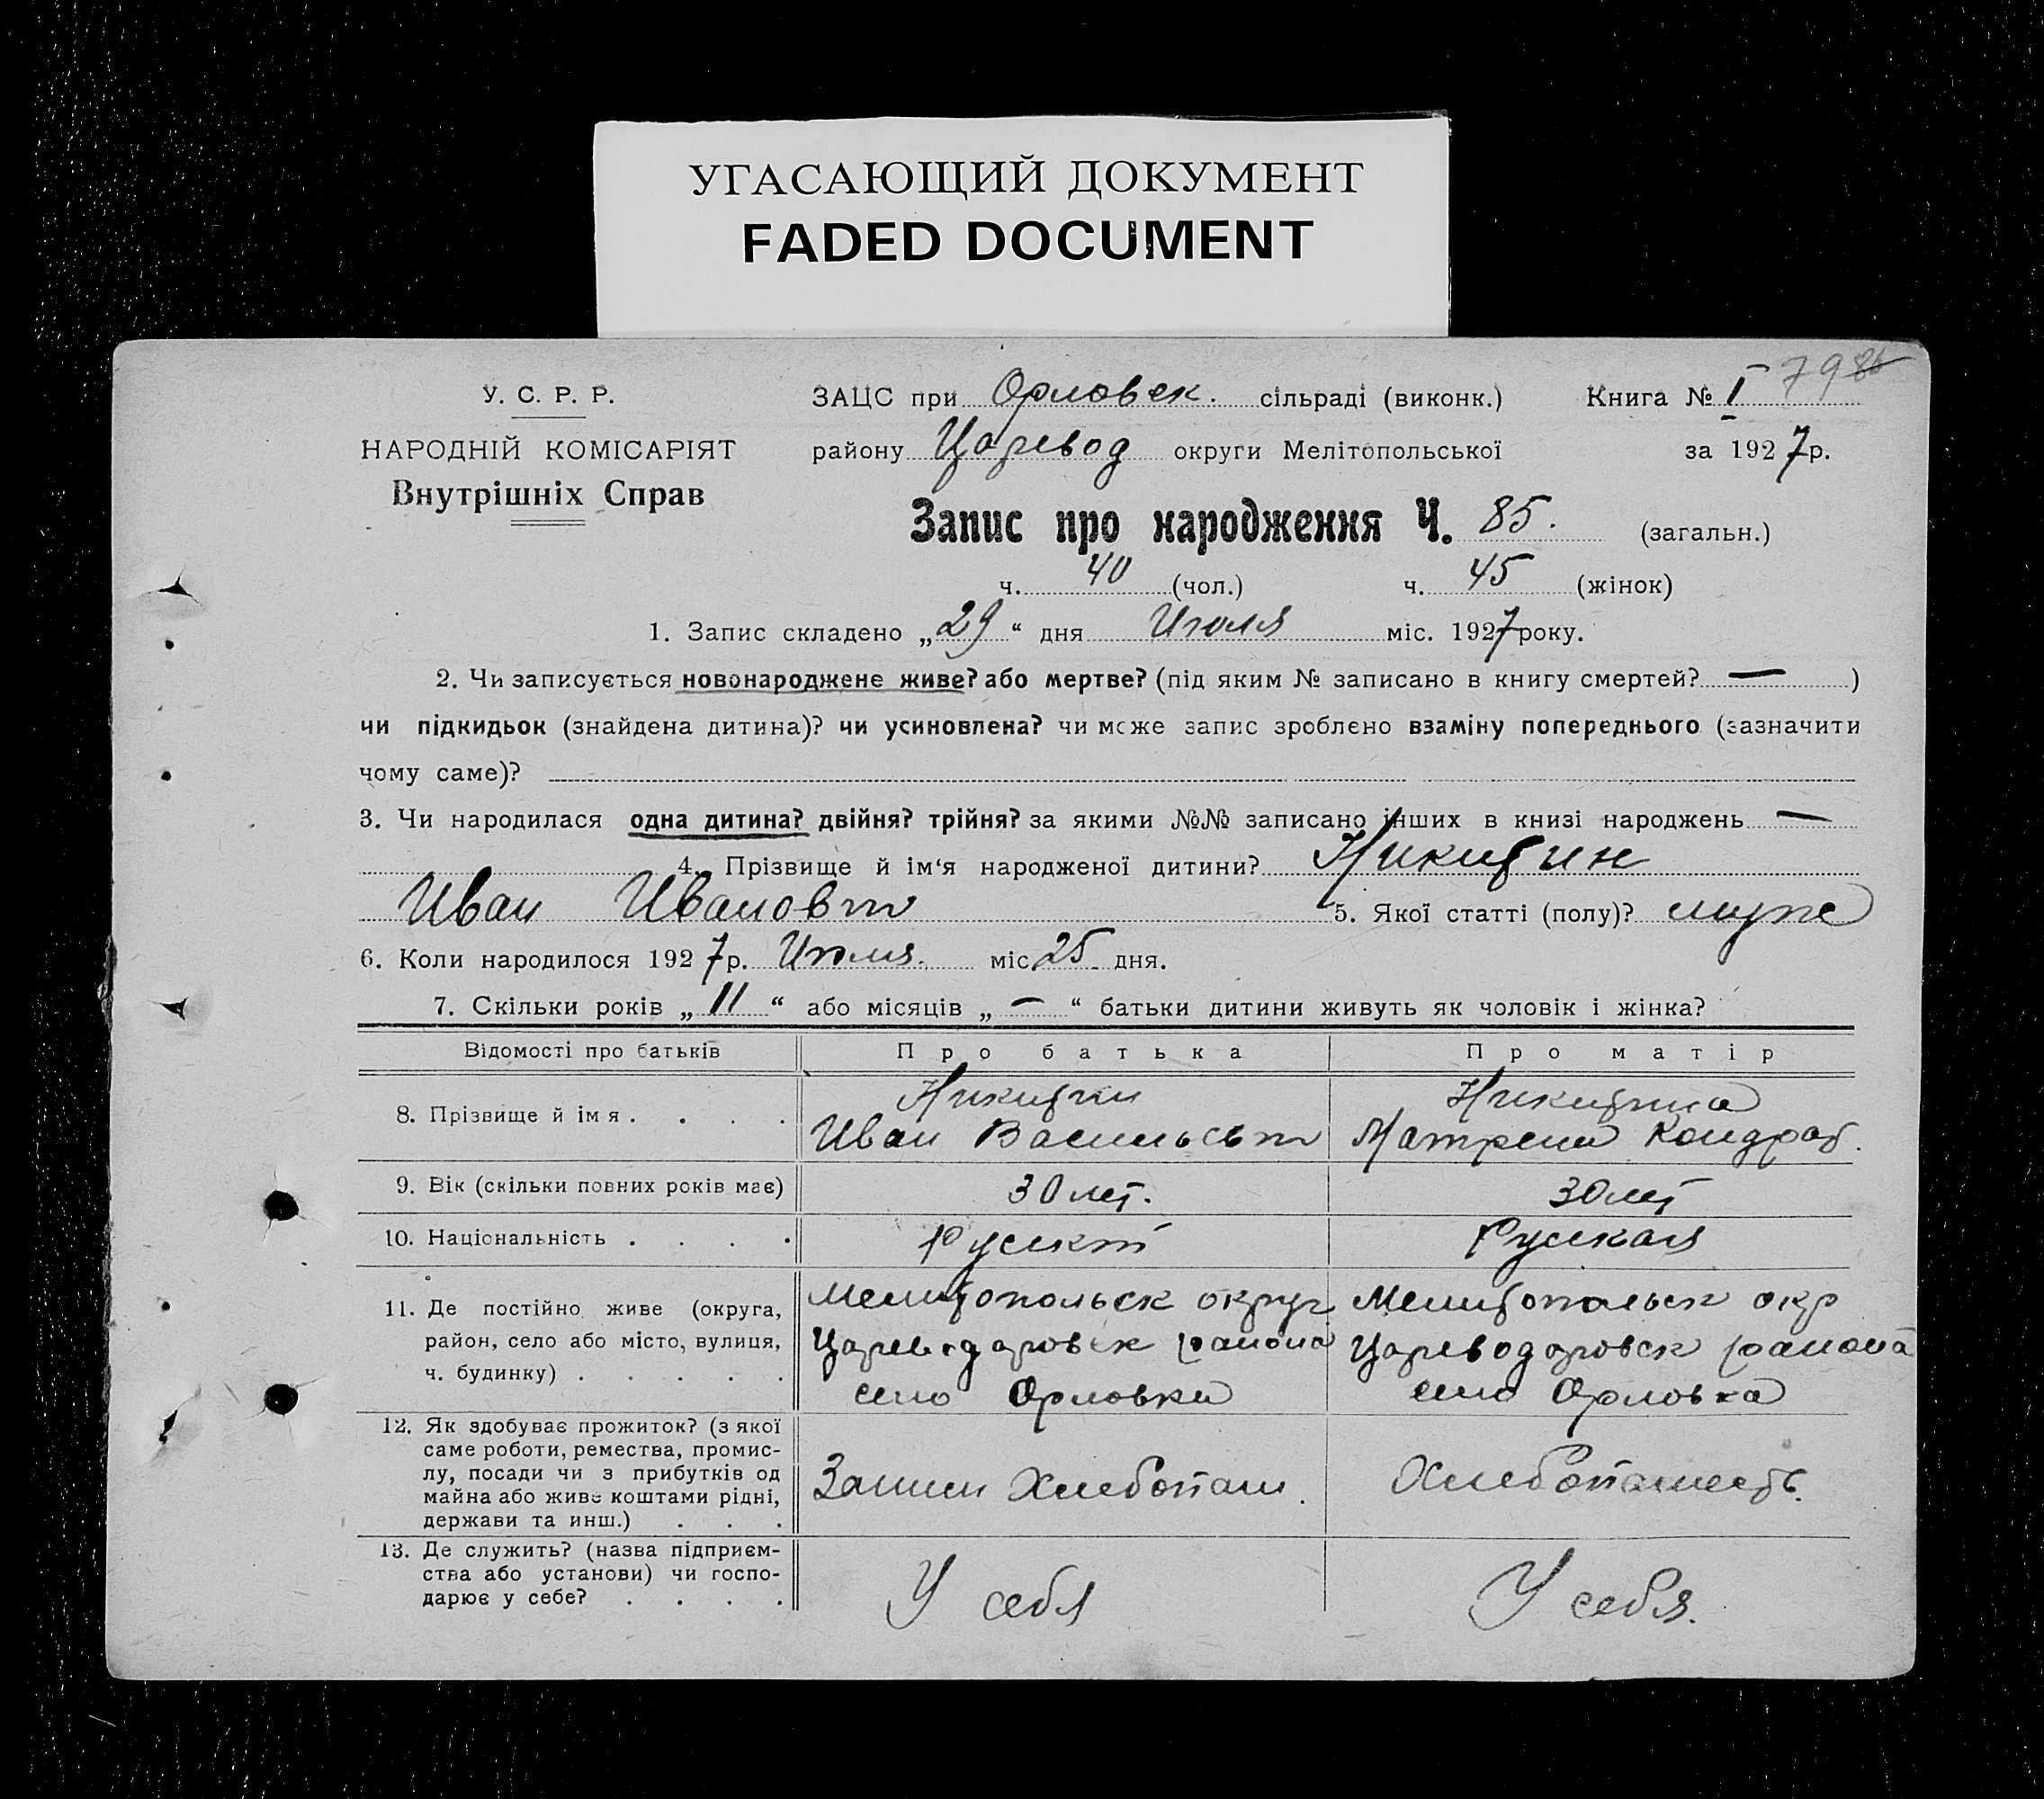 УГАСАЮЩИЙ ДОКУМЕНТ
FADED DOCUMENT
У. С. Р. Р.
НАРОДНІЙ КОМІСАРІЯТ
Внутрішніх Справ
ЗАЦС при Орловск. сільраді (виконк.) Книга № I 79
району Царевод округи Мелітопольської за 1927 р.
Запис про народження Ч. 85. (загальн.)
ч. 40 (чол.) ч. 45 (жінок)
1. Запис складено „29“ дня Июля міс. 1927 року.
2. Чи записується новонароджене живе? або мертве? (під яким № записано в книгу смертей? — )
чи підкидьок (знайдена дитина)? чи усиновлена? чи може запис зроблено взаміну попереднього (зазначити
чому саме)?
3. Чи народилася одна дитина? двійня? трійня? за якими №№ записано інших в книзі народжень —
4. Прізвище й ім‘я народженої дитини? Никитин
Иван Иванович 5. Якої статті (полу)? муж
6. Коли народилося 1927 р. Июля. міс 25 дня.
7. Скільки років „11“ або місяців „—“ батьки дитини живуть як чоловік і жінка?
Відомості про батьків Про батька Про матір
8. Прізвище й ім я . . . .
Никитин
Иван Васильевич
Никитина
Матрена Кондрат.
9. Вік (скільки повних років має) 30 лет. 30 лет
10. Національність . . . . Руский Руская
11. Де постійно живе (округа,
район, село або місто, вулиця,
ч. будинку) . . . . .
Мелитопольск округ
Цареводаровск района
село Орловка
Мелитопольск окр
Цареводаровск района
село Орловка
12. Як здобуває прожиток? (з якої
саме роботи, ремества, промис-
лу, посади чи з прибутків од
майна або живе коштами рідні,
держави та инш.) . . .
Хлебопаш.
Хлебопашеств.
13. Де служить? (назва підприєм-
ства або установи) чи госпо-
дарює у себе? . . . .
У себя
У себя.